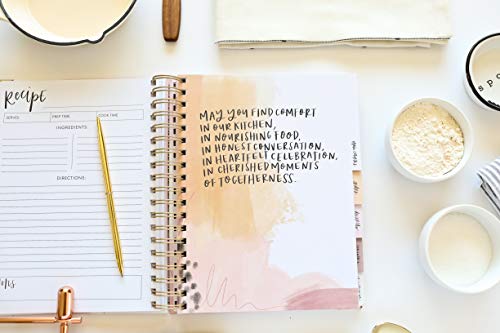 Recipe
SERVES: PREP TIME: COOK TIME:
INGREDIENTS:
DIRECTIONS:
MAY YOU FIND COMFORT
IN OUR KITCHEN,
IN NOURISHING FOOD,
IN HONEST CONVERSATION,
IN HEARTFELT CELEBRATION,
IN CHERISHED MOMENTS
OF TOGETHERNESS.